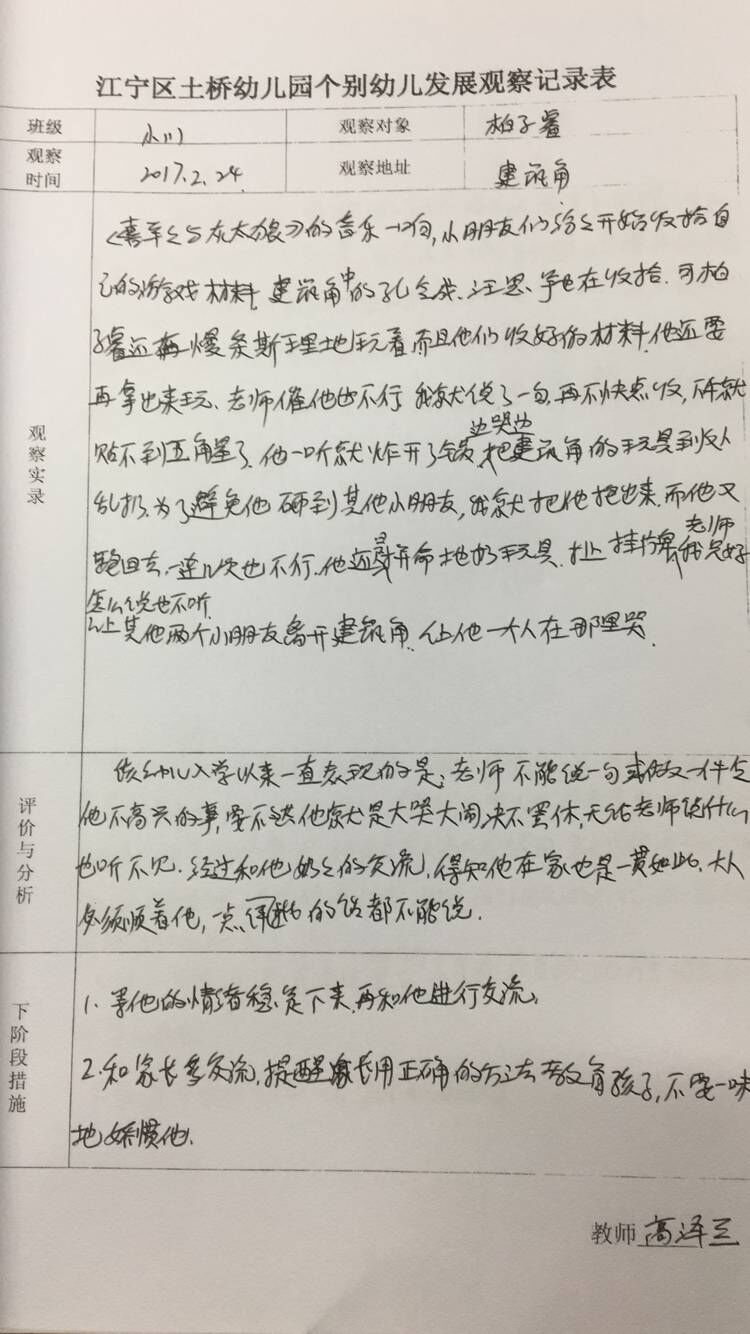 江宁区土桥幼儿园个别幼儿发展观察记录表
班级 小 观察对象 柏子睿
观察时间 2017.2.24. 观察地址 建筑角
《喜羊羊与灰太狼》的音乐一响,小朋友们纷纷开始收拾自
己的游戏材料.建筑角中的孔令成、汪思 也在收拾.可柏
子睿还在慢条斯理地玩着而且他们收好的材料.他还要
再拿出来玩、老师催他也不行 我就说了一句,再不快点收,下午就
贴不到五角星了.他一听就炸开了锅,边哭边把建筑角的玩具到处
乱扔.为了避免他砸到其他小朋友,我就把他抱出来.而他又
跑回去.一连几次也不行.他还是拼命地扔玩具.扯挂饰.老师
怎么说也不听 我只好
让其他两个小朋友离开建筑角.让他一个人在那里哭.
观察实录
该幼儿入学以来一直表现的是:老师不能说一句或做一件令
他不高兴的事,要不然他就是大哭大闹决不罢休,无论老师说什么
也听不见.经过和他奶奶的交流,得知他在家也是一贯如此.大人
必须顺着他,一点 的话都不能说.
评价与分析
1.等他的情绪稳定下来,再和他进行交流.
2.和家长多交流,提醒家长用正确的方法教育孩子,不要一味
地娇惯他.
下阶段措施
教师 高泽兰